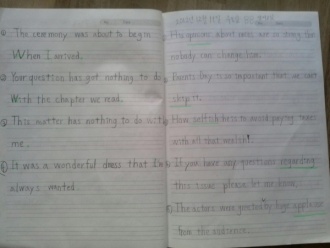 The ceremony was about to begin
When I arrived.
Your question has got nothing to do
With the chapter we read.
This matter has nothing to do with
me.
It was a wonderful dress that
always wanted.
His opinions about news are so strong that
nobody can change him.
Parents Day is so important that we can't
skip it.
How selfish he is to avoid paying taxes
with all that wealth!
If you have any questions regarding
this issue please let me know.
The actors were greeted by huge applause
from the audience.